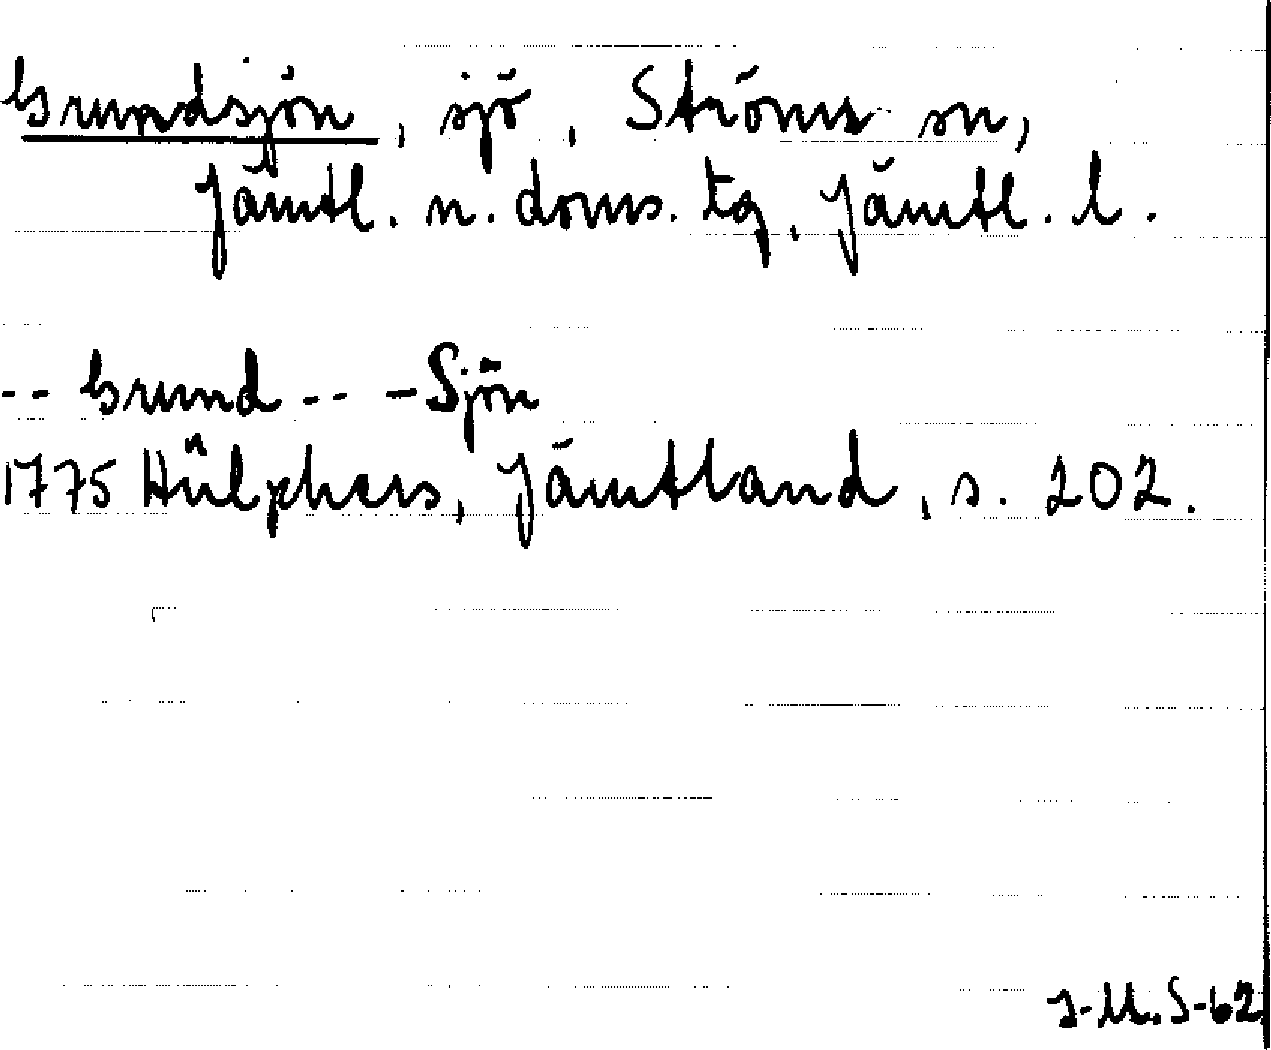 Grundsjön, sjö, Ströms sn,
Jämtl. n. doms. tg, Jämtl. l.
-- Grund -- - Sjön
1775 Hülphers, Jämtland, s. 202.
J-M.S-62